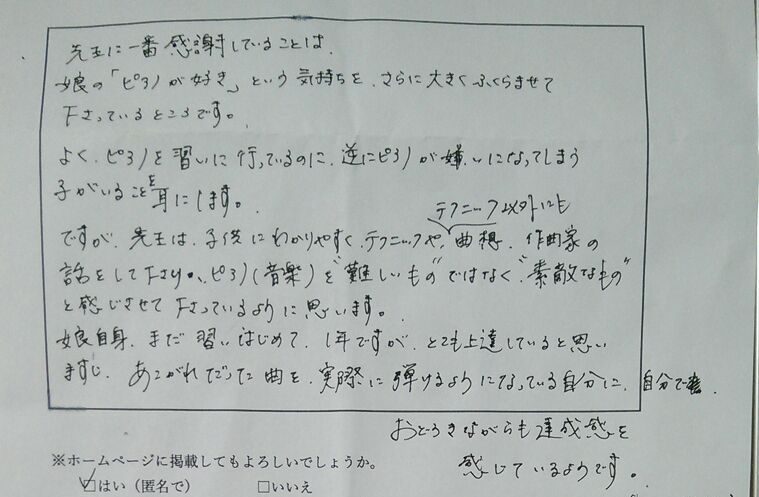 先生に一番感謝していることは、
娘の「ピアノが好き」という気持ちを、さらに大きくふくらませて
下さっているところです。
よく、ピアノを習いに行っているのに、逆にピアノが嫌いになってしまう
子がいることを耳にします。
テクニック以外にも
ですが、先生は、子供にわかりやすく、テクニックや、曲想、作曲家の
話をして下さり、ピアノ(音楽)を"難しいもの"ではなく、"素敵なもの"
と感じさせて下さっているように思います。
娘自身、まだ習いはじめて、1年ですが、とても上達していると思い
ますし、あこがれだった曲を、実際に弾けるようになっている自分に、自分で
おどろきながらも達成感を
感じているようです。
※ホームページに掲載してもよろしいでしょうか。
☑はい(匿名で) □いいえ